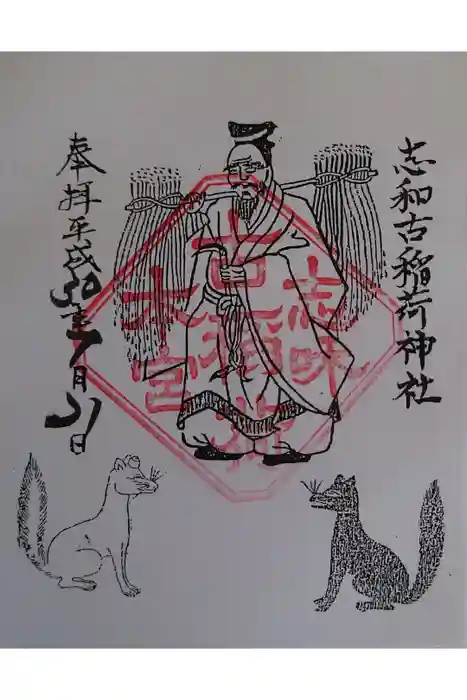 志和古稲荷神社
奉拝平成30年7月31日
志和
古稲荷
本宮